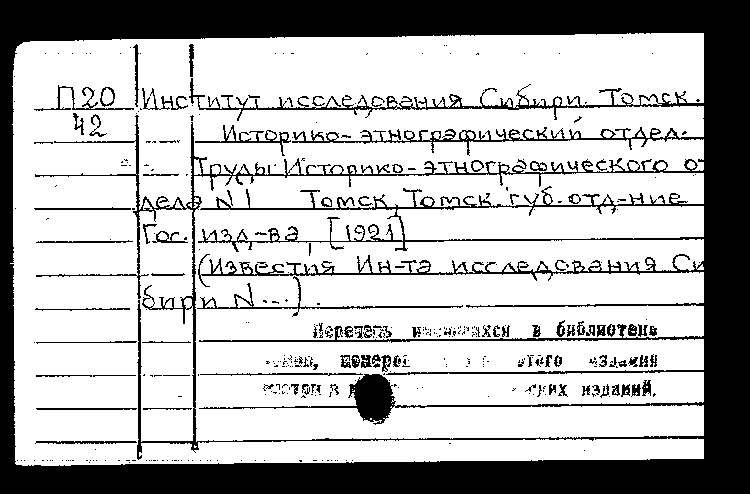 П20 Институт исследования Сибири. Томск.
42 Историко-этнографический отдел.
Труды Историко-этнографического от
дела N 1 Томск, Томск. губ. отд-ние
Гос. изд-ва, [1921]
(Известия Ин-та исследования Си
бири N...).
Перечень имеющихся в библиотеке
номеров этого издания
смотри в изданий.